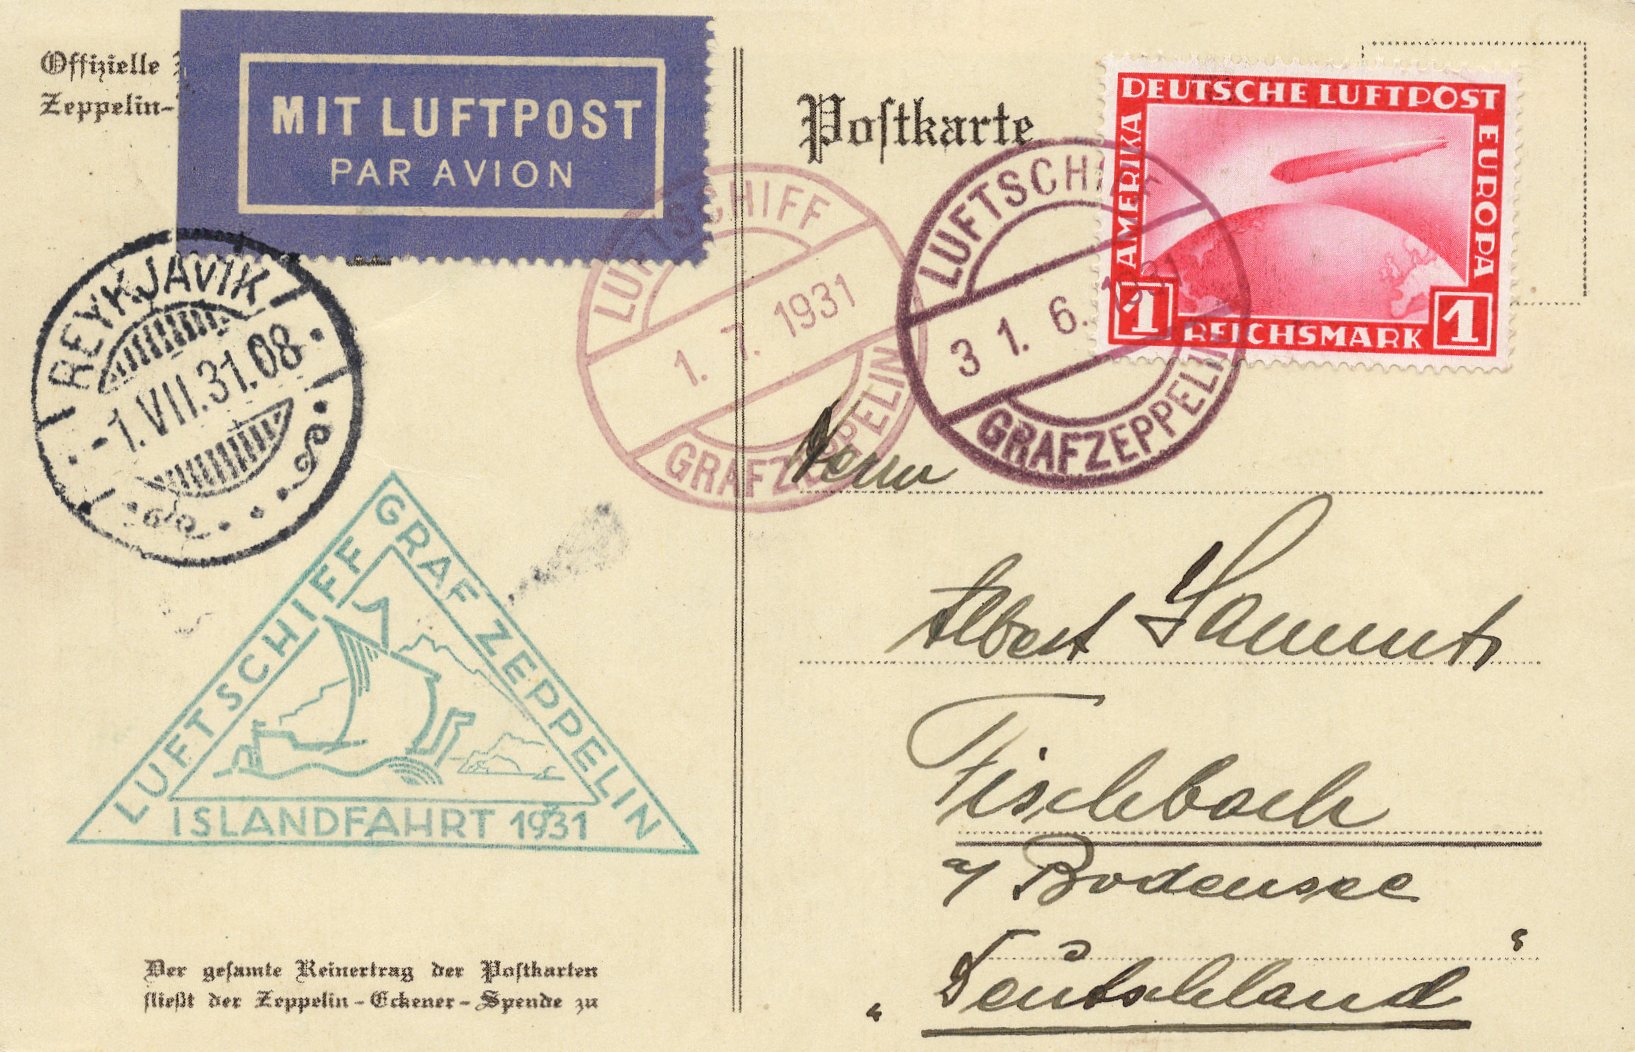 Offizielle
Zeppelin-
MIT LUFTPOST
PAR AVION
Postkarte
DEUTSCHE LUFTPOST
EUROPA
AMERIKA
1 REICHSMARK 1
LUFTSCHIFF
1. 7. 1931
GRAF ZEPPELIN
LUFTSCHIFF
31. 6. 1931
GRAF ZEPPELIN
REYKJAVIK
-1.VII.31.08
LUFTSCHIFF GRAF ZEPPELIN
ISLANDFAHRT 1931
Herrn
Albert Sammt
Fischbach
a/ Bodensee
„Deutschland“
Der gesamte Reinertrag der Postkarten
fließt der Zeppelin-Eckener-Spende zu